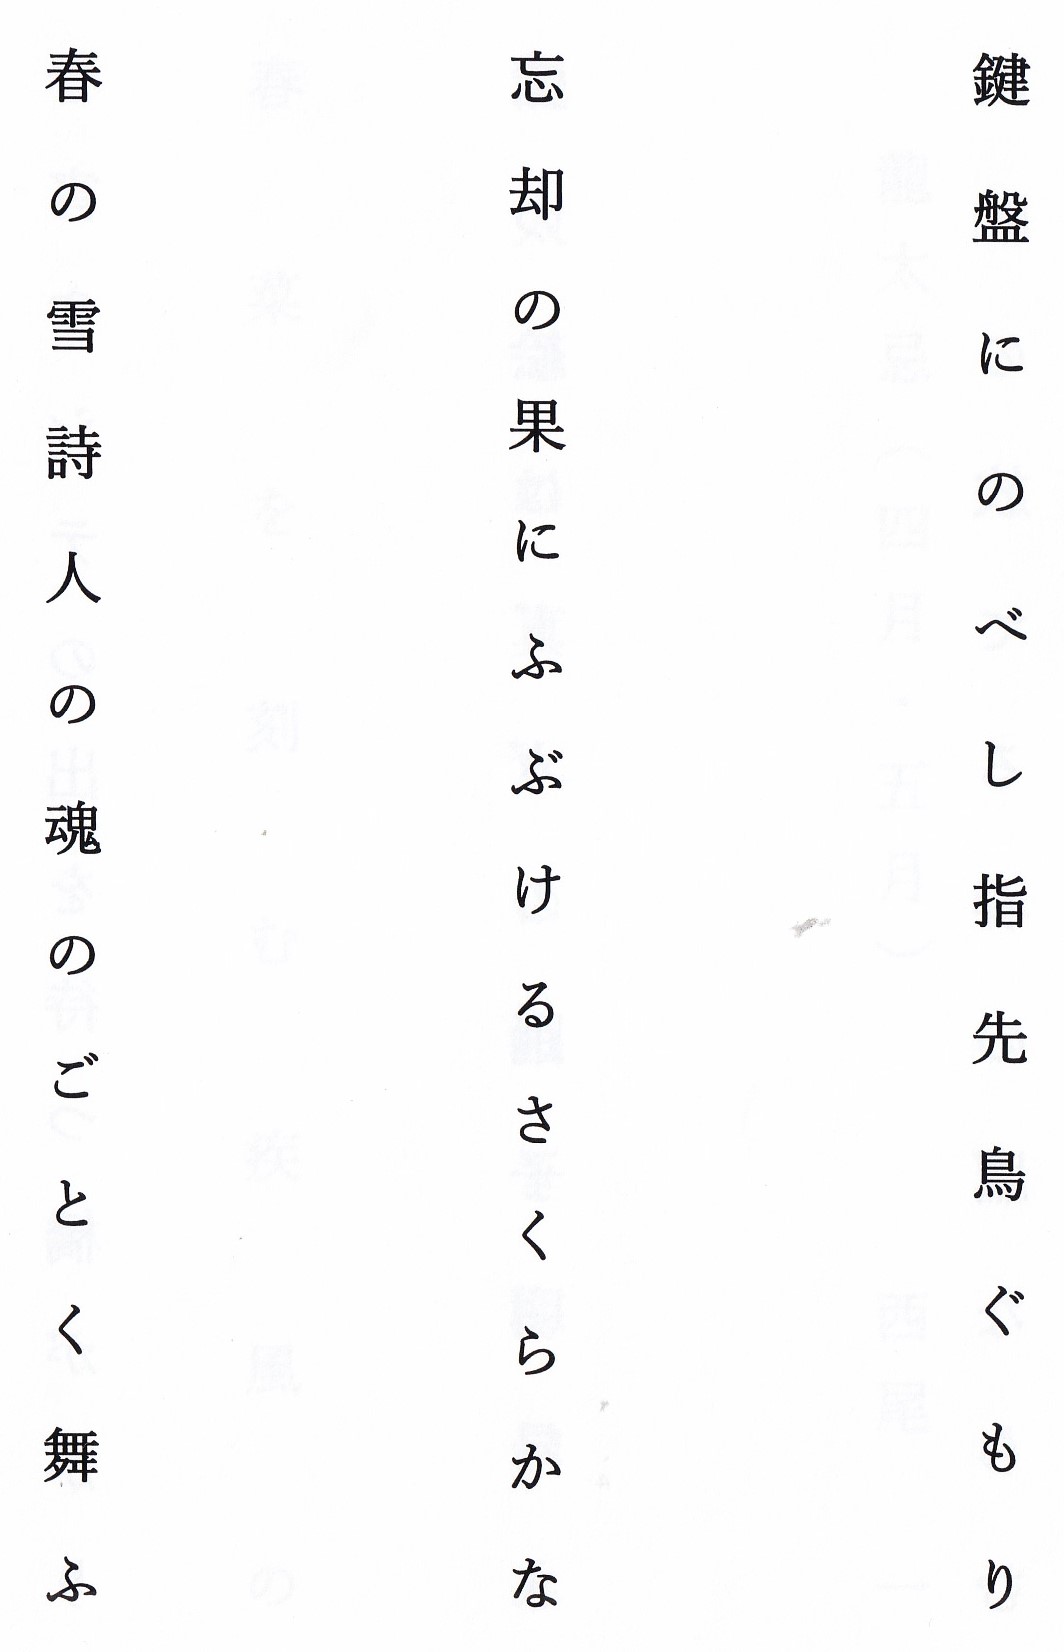 鍵盤にのべし指先鳥ぐもり
忘却の果にふぶけるさくらかな
春の雪詩人の魂のごとく舞ふ